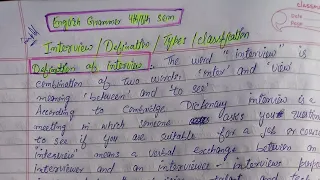 English Grammer 4th/6th sem
Interview / Defination / Types / classification
Defination of interview:- The word "interview" is
combination of two words: 'inter' and 'view'
meaning 'between' and 'to see'
According to Cambridge Dictionary interview is a
meeting in which someone asks you questions
to see if you are suitable for a job or course
"interview" means a verbal exchange between an
interviewer and an interviewee - interview
and
Date
Page